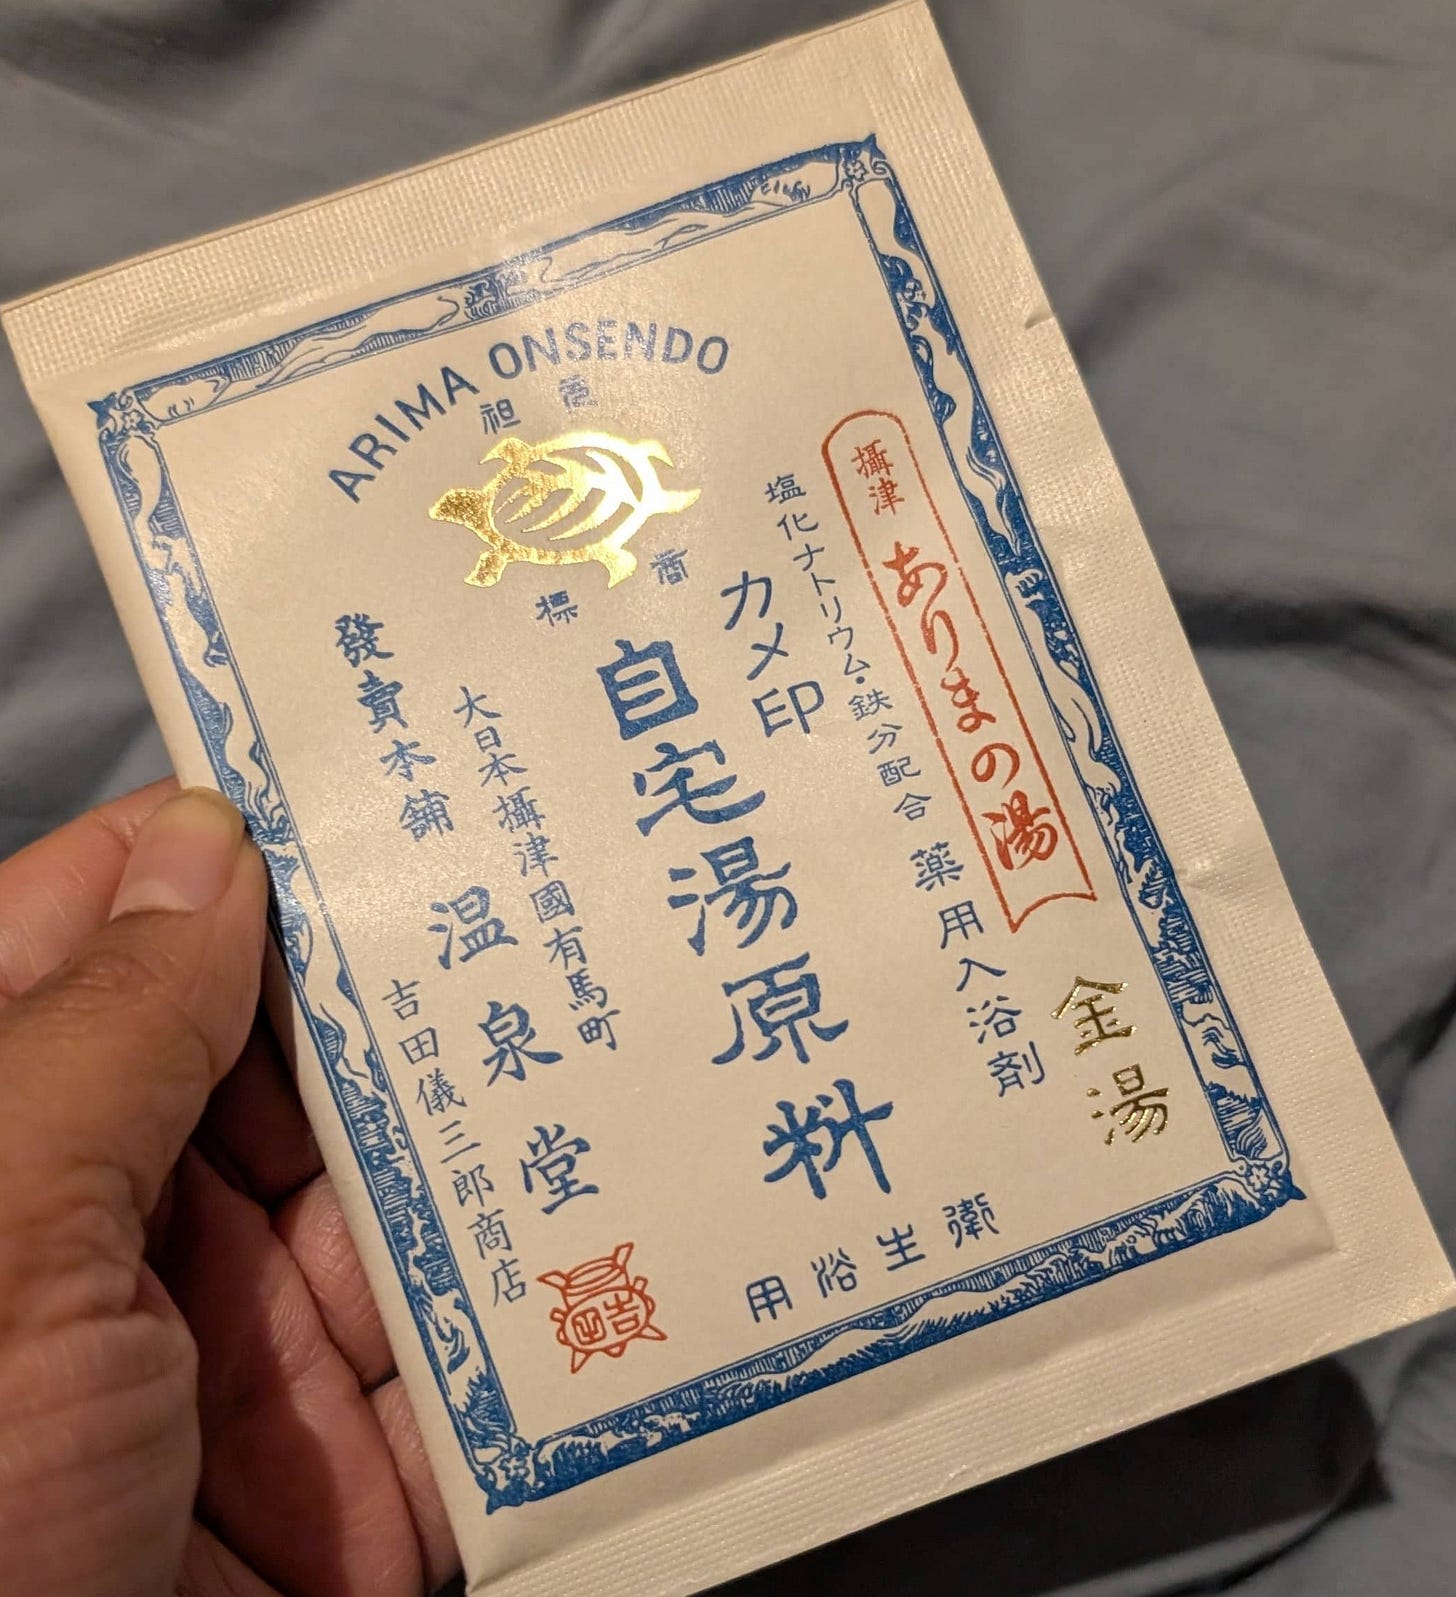 ARIMA ONSENDO
商標
攝津 ありまの湯
金湯
塩化ナトリウム・鉄分配合 薬用入浴剤
カメ印
自宅湯原料
大日本攝津國有馬町
發賣本舗 温泉堂
吉田儀三郎商店
衛生浴用